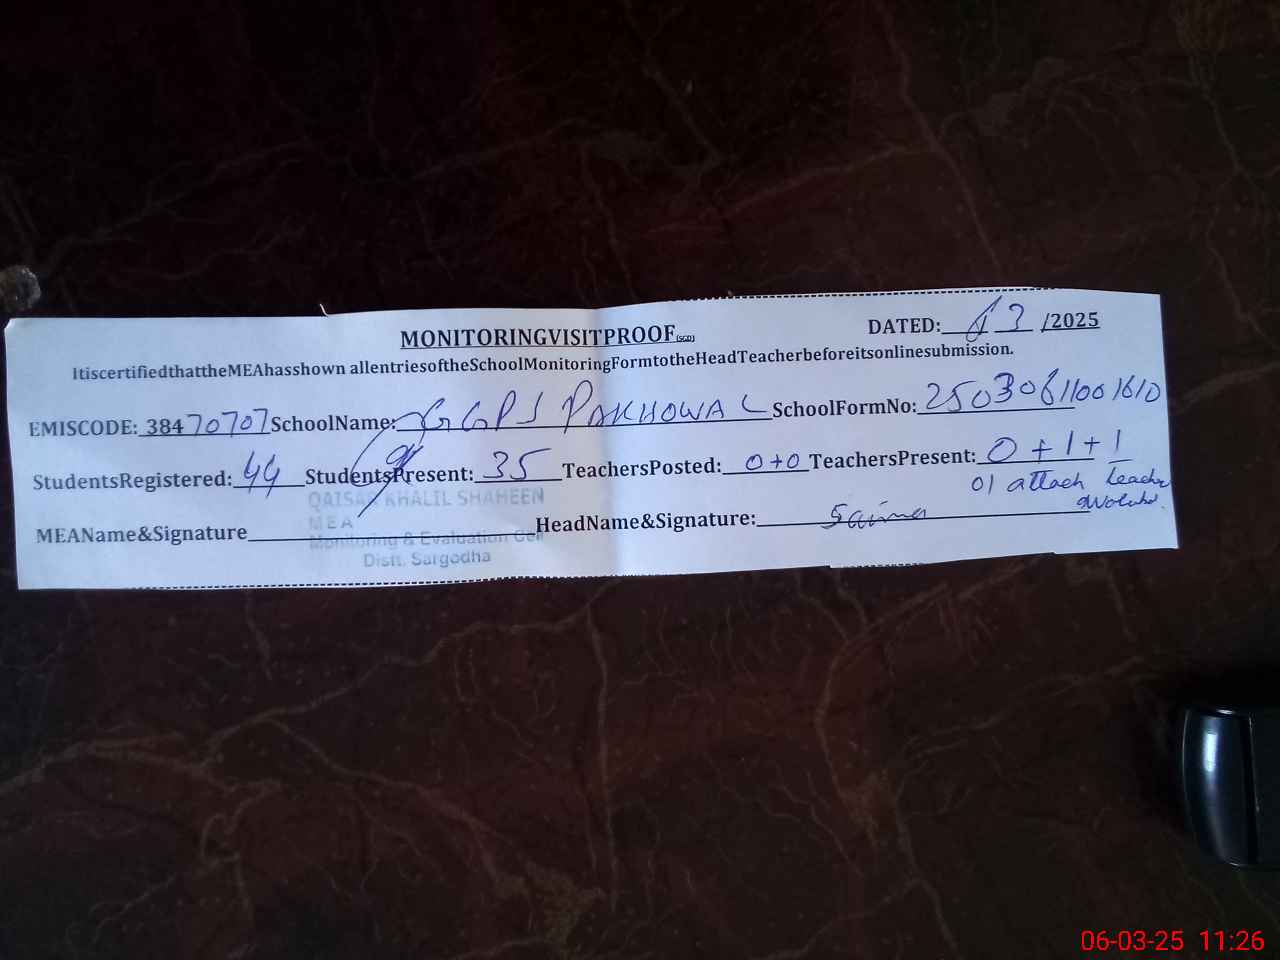 MONITORINGVISITPROOF(SGD)
DATED: 6 3 /2025
ItiscertifiedthattheMEAhasshown allentriesoftheSchoolMonitoringFormtotheHeadTeacherbeforeitsonlinesubmission.
EMISCODE: 38470707 SchoolName: GGPS PAKHOWAL SchoolFormNo: 25030611001610
StudentsRegistered: 44 StudentsPresent: 35 TeachersPosted: 0+0 TeachersPresent: 0+1+1
01 attach teacher
QAISAR KHALIL SHAHEEN
MEA
MEAName&Signature HeadName&Signature: Saima
Monitoring & Evaluation Cell
Distt. Sargodha
06-03-25 11:26